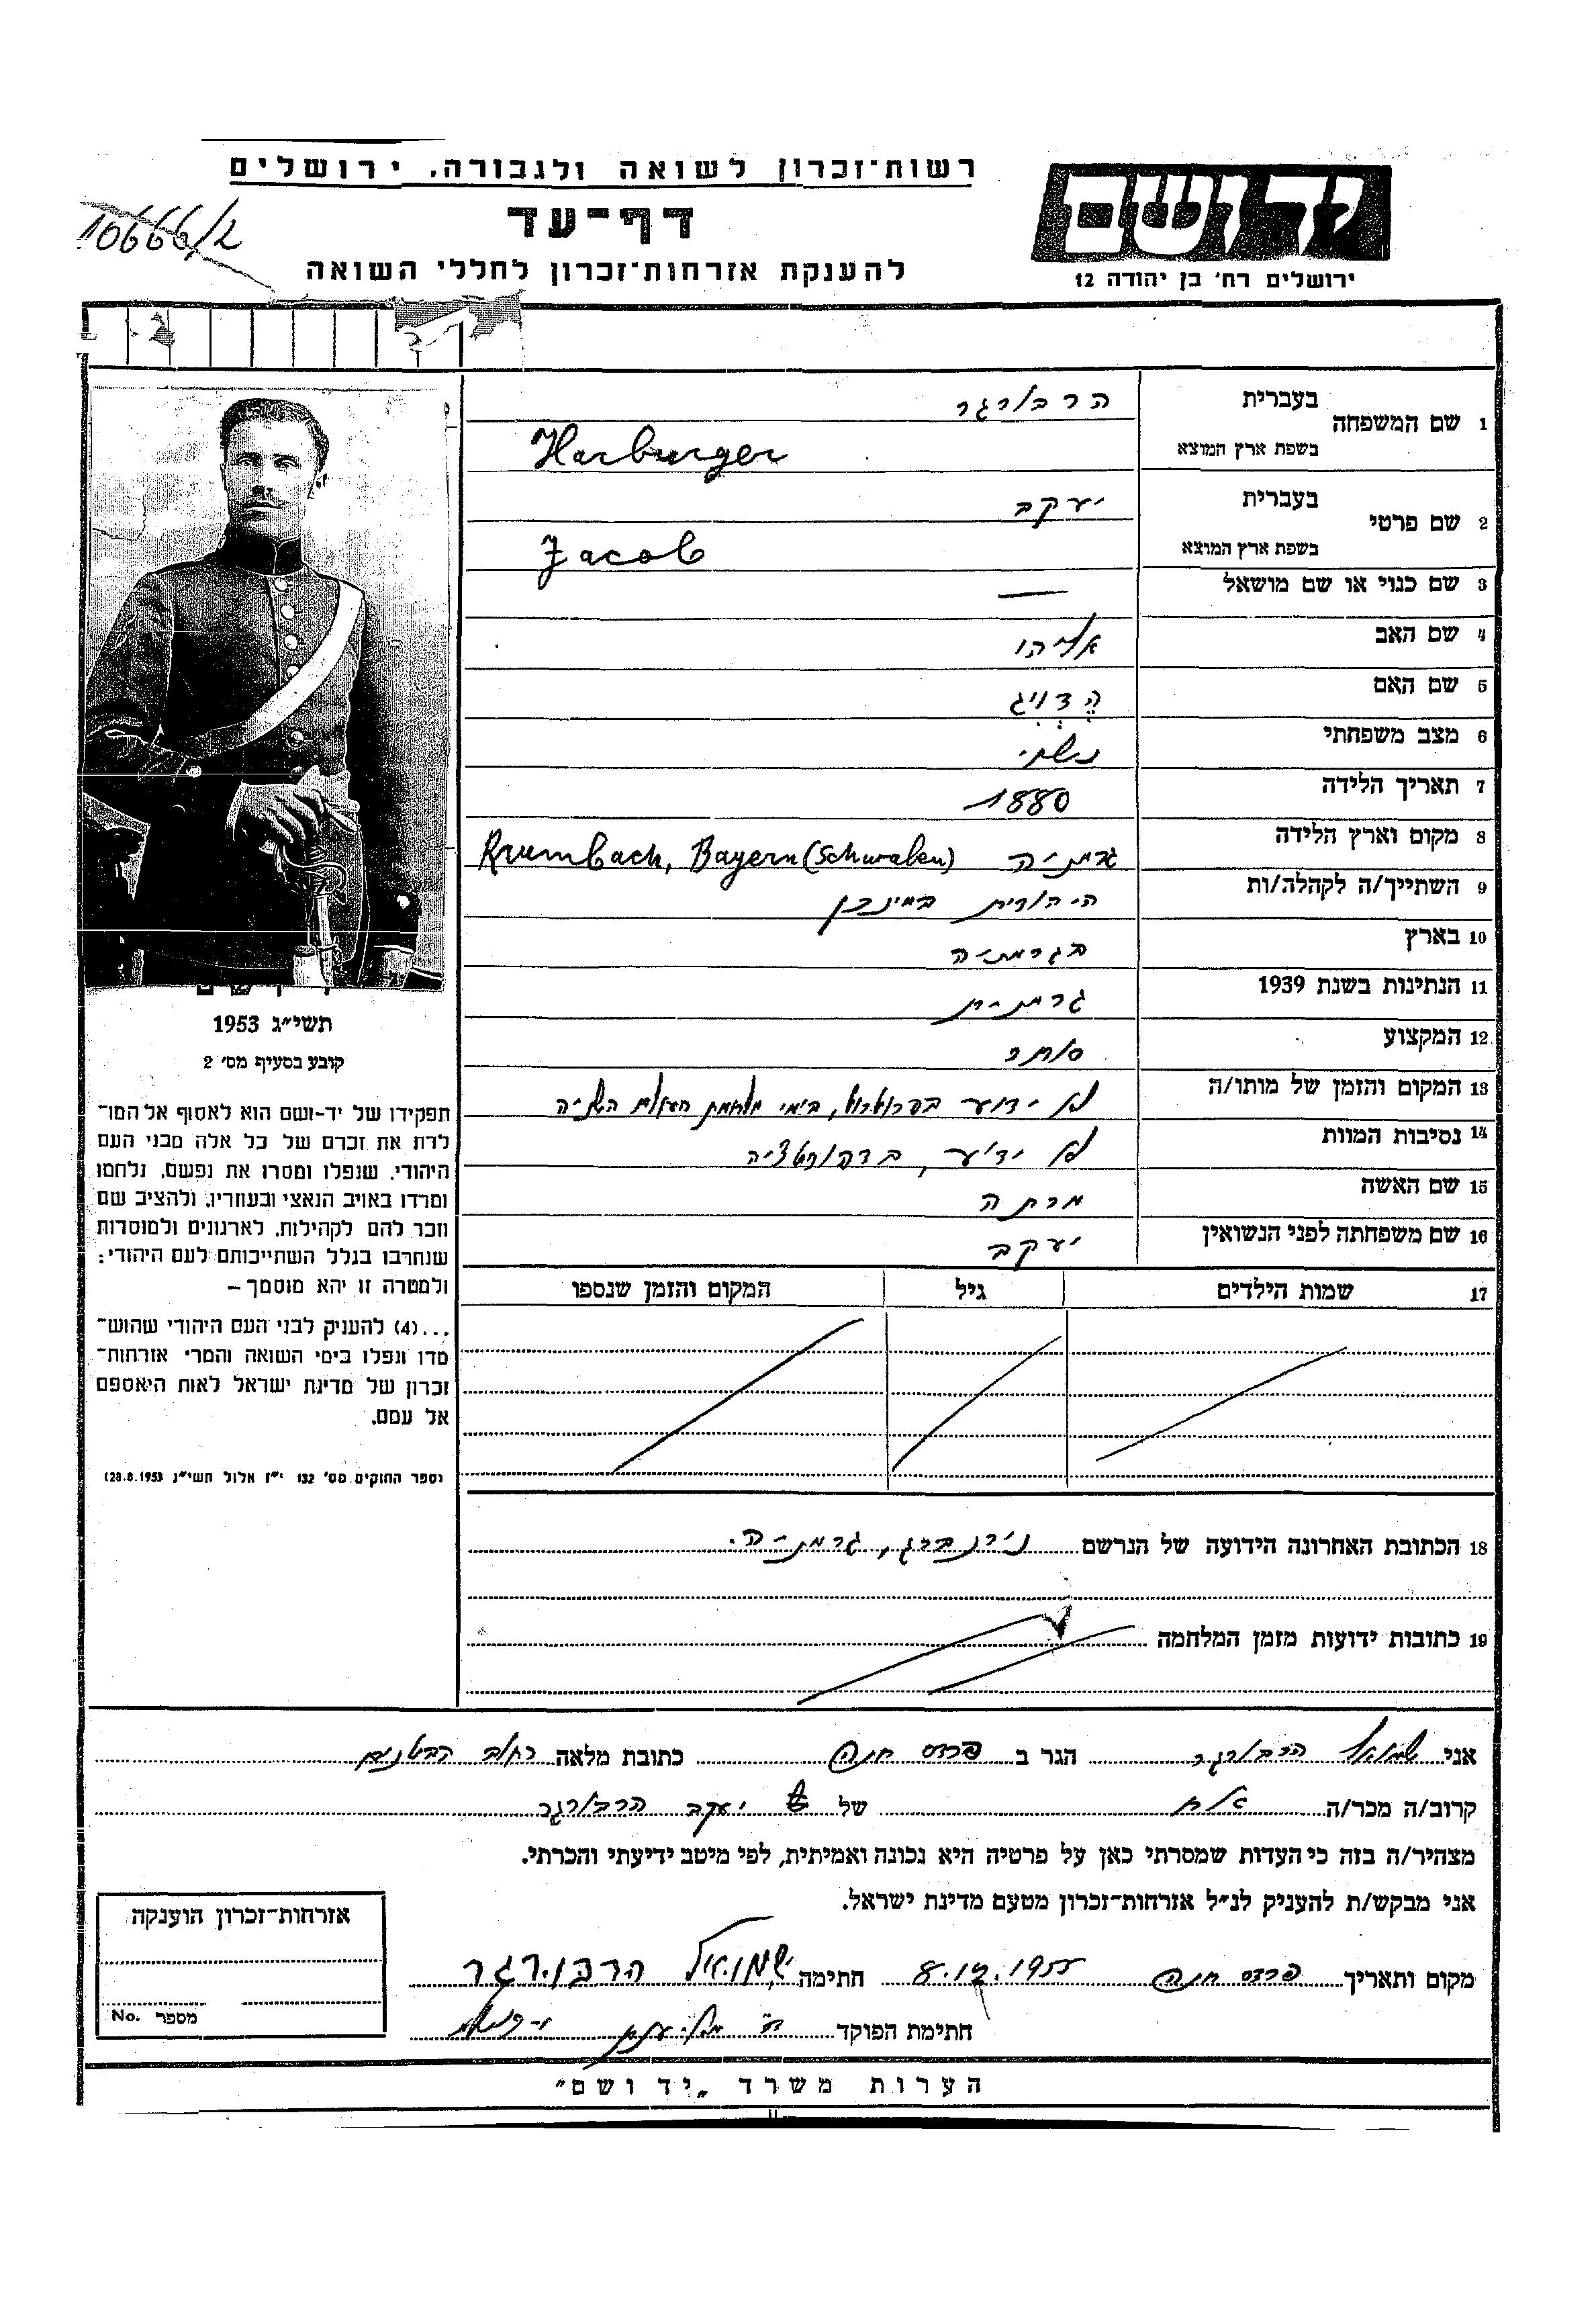 רשות-זכרון לשואה ולגבורה, ירושלים
דף-עד
להענקת אזרחות-זכרון לחללי השואה
10666/2
יד ושם
ירושלים רח' בן יהודה 12
1 שם המשפחה
בעברית הרבורגר
בשפת ארץ המוצא Harburger
2 שם פרטי
בעברית יעקב
בשפת ארץ המוצא Jacob
3 שם כנוי או שם מושאל —
4 שם האב אליהו
5 שם האם הדויג
6 מצב משפחתי נשוי
7 תאריך הלידה 1880
8 מקום וארץ הלידה גרמניה Krumbach, Bayern (Schwaben)
9 השתייך/ה לקהלה/ות היהודית במינכן
10 בארץ בגרמניה
11 הנתינות בשנת 1939 גרמנית
12 המקצוע סוחר
13 המקום והזמן של מותו/ה לא ידוע בימי מלחמת העולם השניה
14 נסיבות המוות לא ידוע, בדפורטציה
15 שם האשה מרתה
16 שם משפחתה לפני הנשואין יעקב
17 שמות הילדים גיל המקום והזמן שנספו
18 הכתובת האחרונה הידועה של הנרשם נירנברג, גרמניה.
19 כתובות ידועות מזמן המלחמה
תשי"ג 1953
קובע בסעיף מס' 2
תפקידו של יד-ושם הוא לאסוף אל המו-
לדת את זכרם של כל אלה מבני העם
היהודי, שנפלו ומסרו את נפשם, נלחמו
ומרדו באויב הנאצי ובעוזריו, ולהציב שם
וזכר להם לקהילות, לארגונים ולמוסדות
שנחרבו בגלל השתייכותם לעם היהודי;
ולמטרה זו יהא מוסמך –
...(4) להעניק לבני העם היהודי שהוש-
מדו ונפלו בימי השואה והמרי אזרחות-
זכרון של מדינת ישראל לאות היאספם
אל עמם.
(ספר החוקים מס' 132 י"ז אלול תשי"ג 28.8.1953)
אני שמואל הרבורגר הגר ב פרדס חנה כתובת מלאה רחוב הבטנים
קרוב/ה מכר/ה אח של יעקב הרבורגר
מצהיר/ה בזה כי העדות שמסרתי כאן על פרטיה היא נכונה ואמיתית, לפי מיטב ידיעתי והכרתי.
אני מבקש/ת להעניק לנ"ל אזרחות-זכרון מטעם מדינת ישראל.
מקום ותאריך פרדס חנה 8.12.1955 חתימה שמואל הרבורגר
חתימת הפוקד
אזרחות-זכרון הוענקה
מספר No.
הערות משרד „יד ושם"